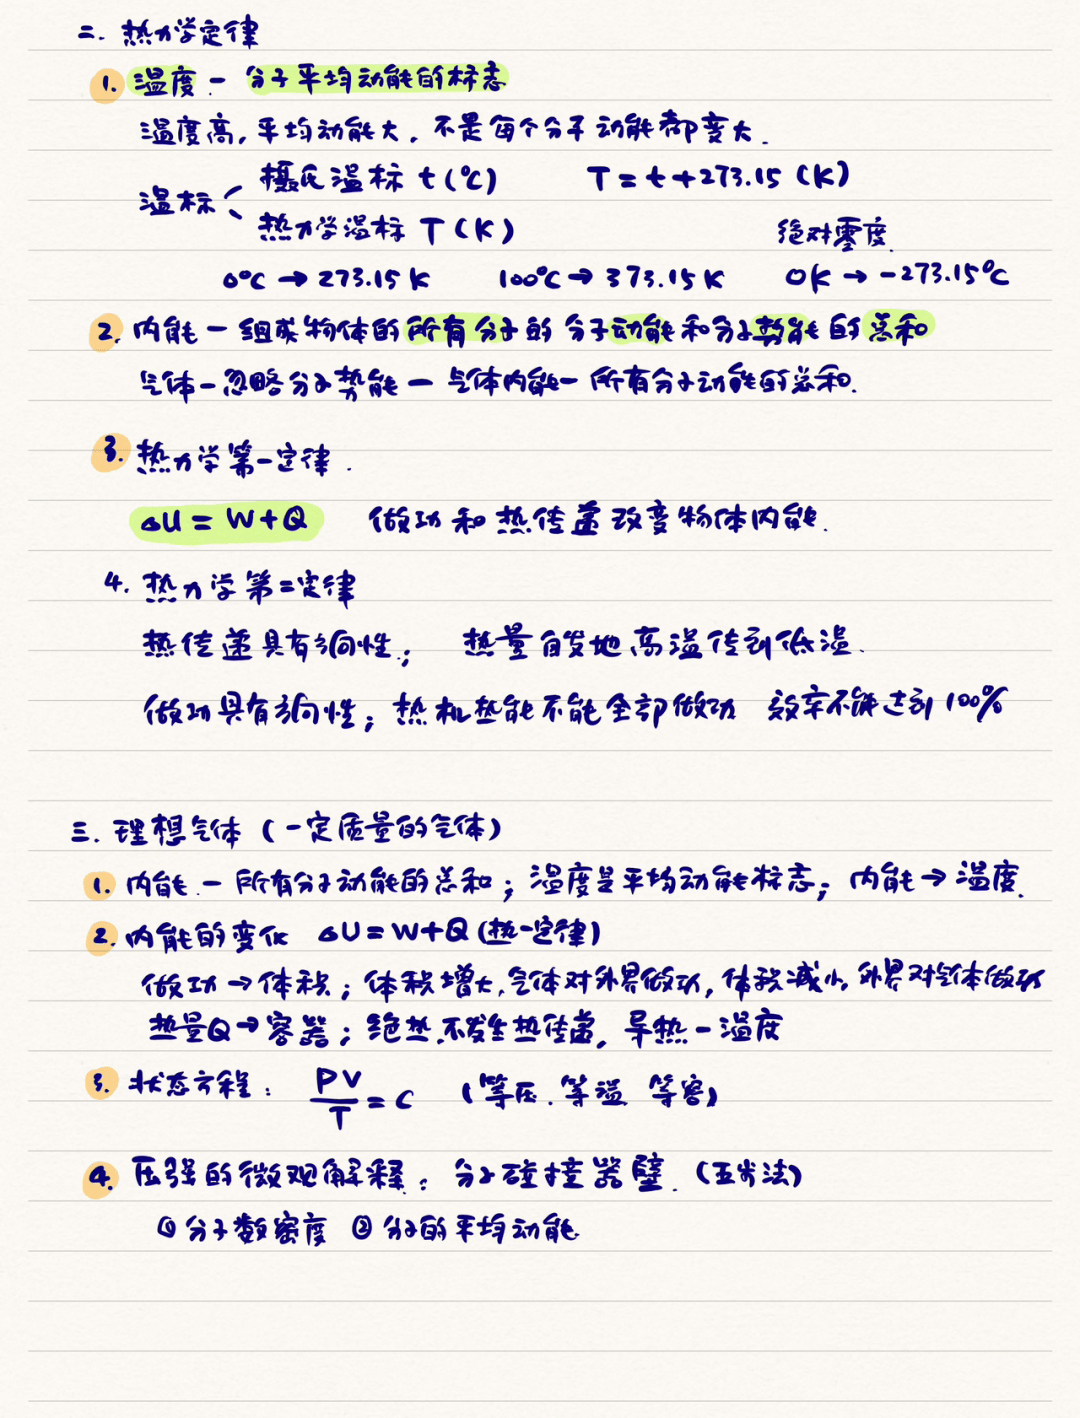 二. 热力学定律
1. 温度 — 分子平均动能的标志
温度高, 平均动能大, 不是每个分子动能都变大.
温标 摄氏温标 t(℃) T = t+273.15 (K)
热力学温标 T (K) 绝对零度
0℃ → 273.15K 100℃ → 373.15K 0K → -273.15℃
2. 内能 — 组成物体的所有分子的分子动能和分子势能的总和
气体 — 忽略分子势能 — 气体内能 — 所有分子动能的总和.
3. 热力学第一定律.
ΔU = W+Q 做功和热传递改变物体内能.
4. 热力学第二定律
热传递具有方向性; 热量自发地高温传到低温.
做功具有方向性; 热机热能不能全部做功 效率不能达到100%
三. 理想气体 (一定质量的气体)
1. 内能 — 所有分子动能的总和; 温度是平均动能标志; 内能 → 温度.
2. 内能的变化 ΔU = W+Q (热一定律)
做功 → 体积; 体积增大, 气体对外界做功, 体积减小, 外界对气体做功
热量Q → 容器; 绝热, 不发生热传递, 导热 — 温度
3. 状态方程: PV/T = C (等压. 等温. 等容)
4. 压强的微观解释: 分子碰撞器壁. (五步法)
① 分子数密度 ② 分子的平均动能